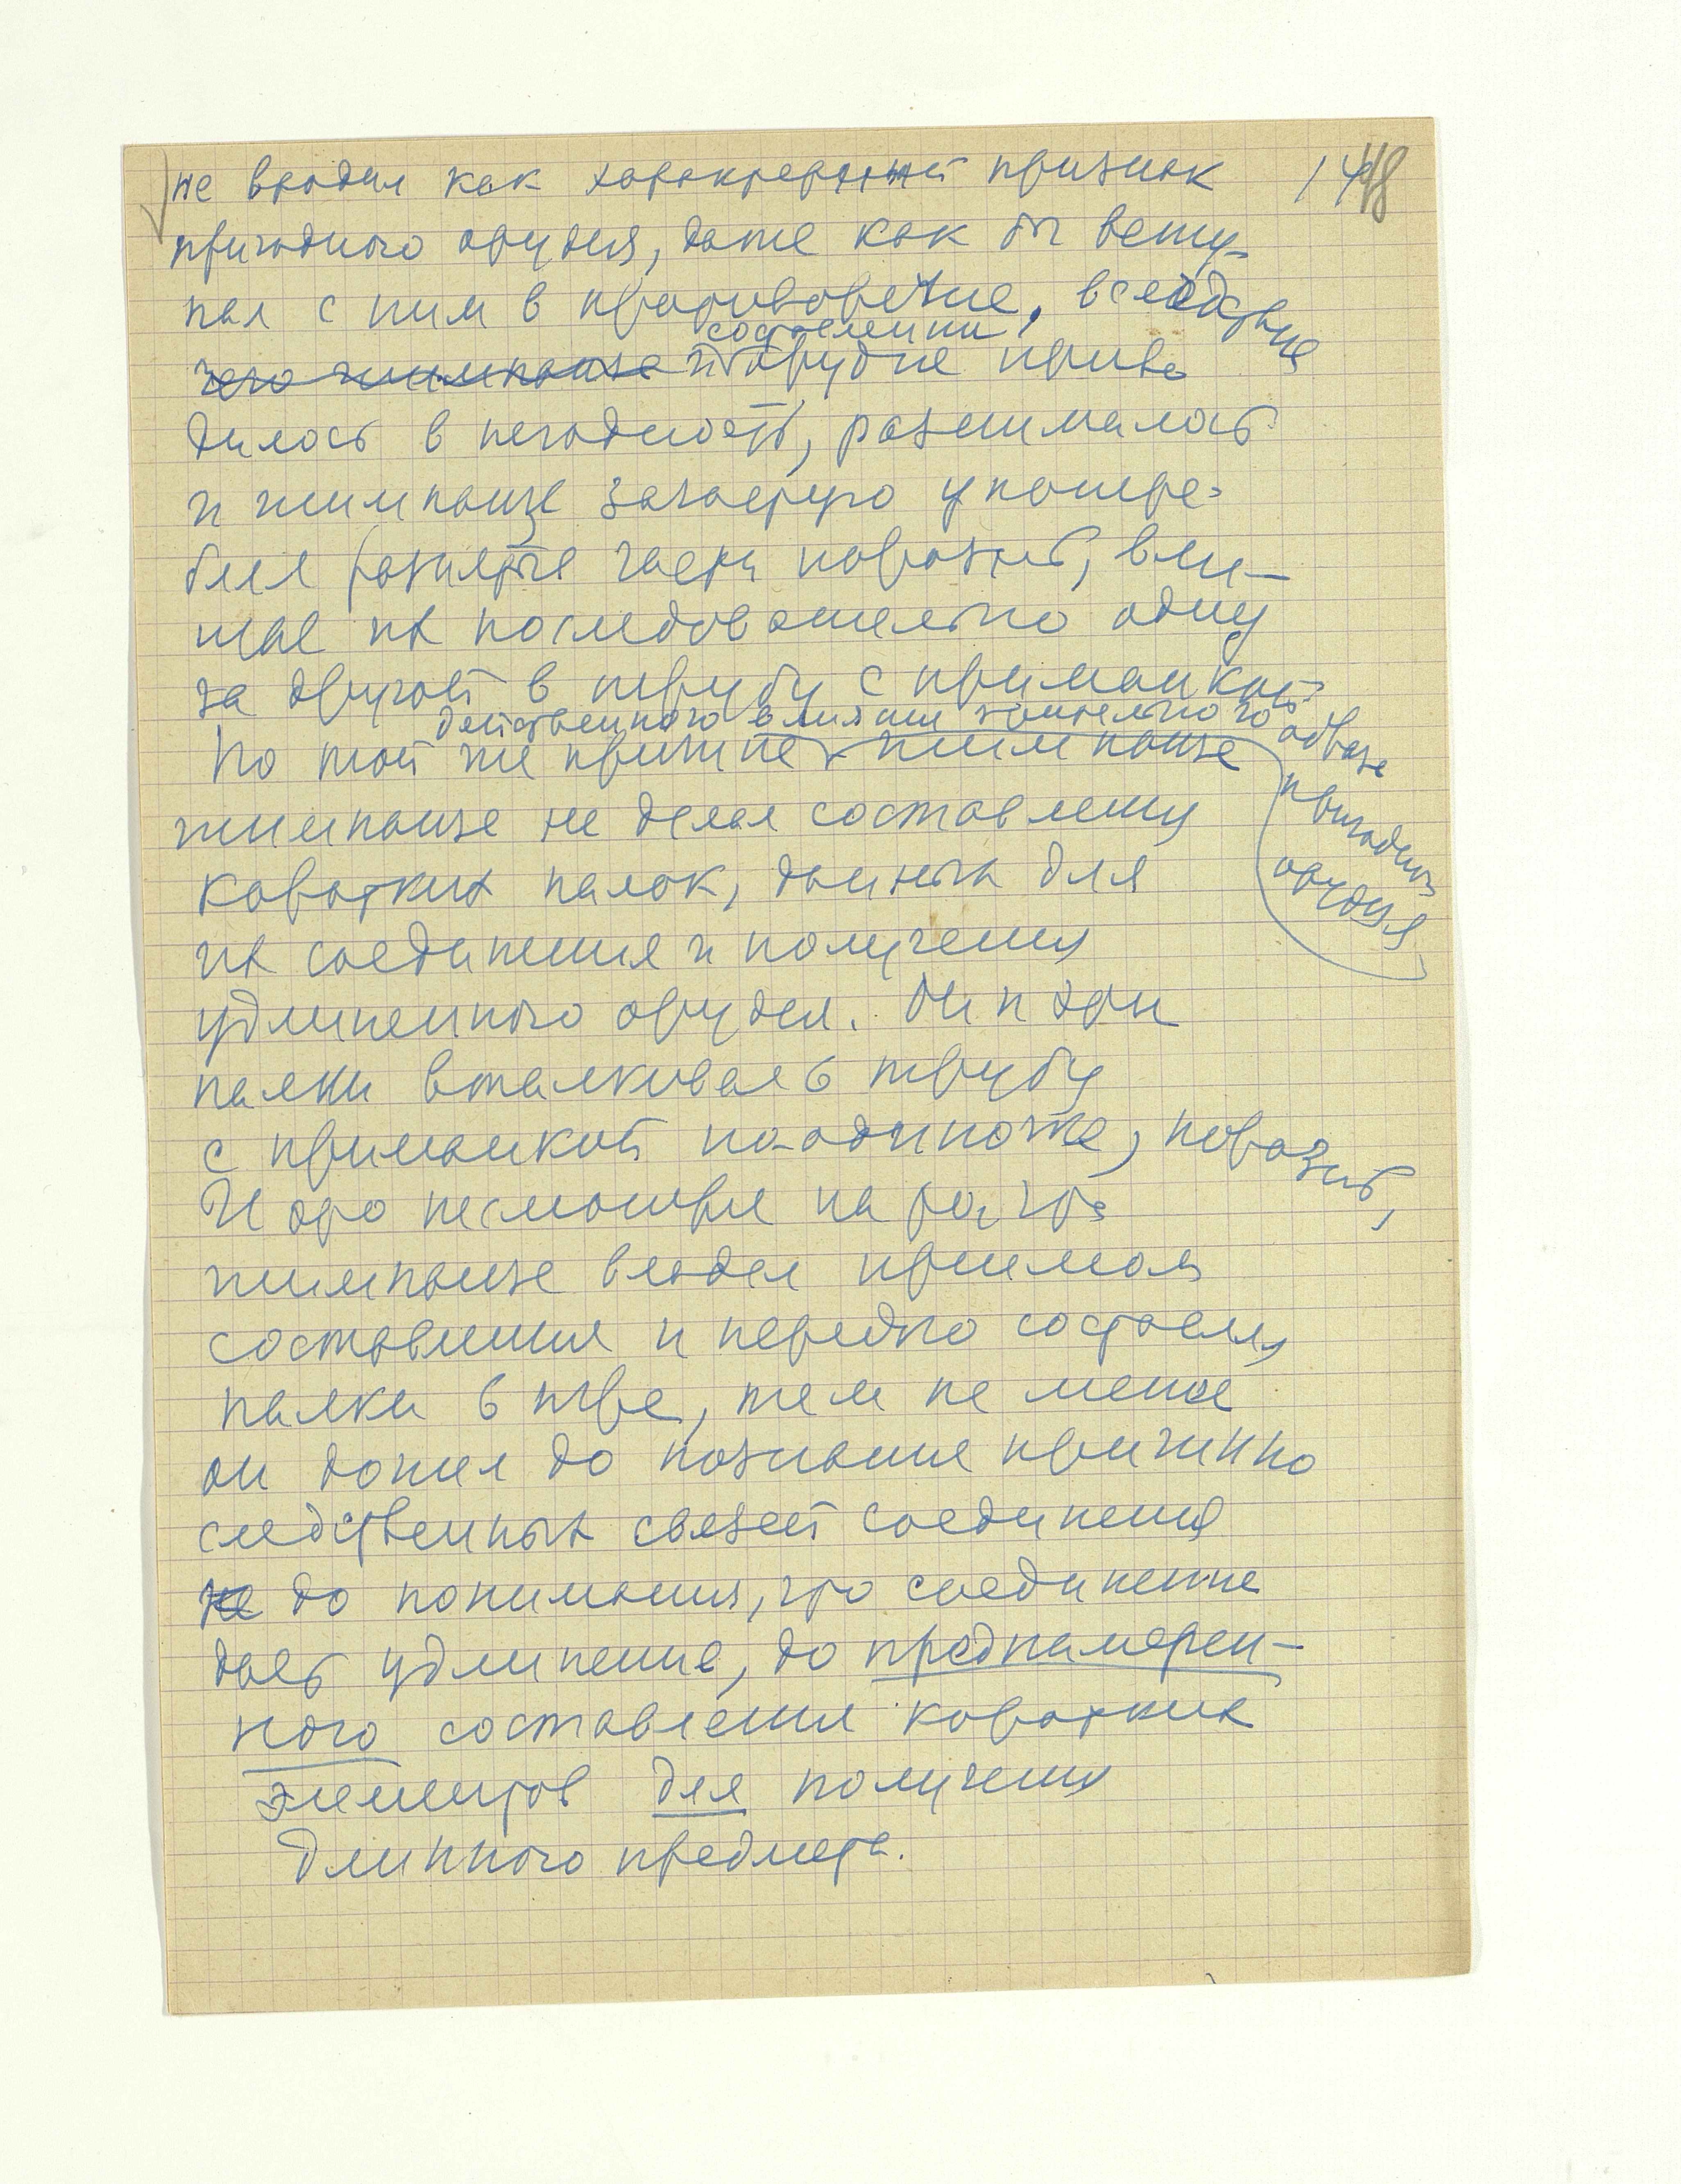 не входил как характерный признак 148
пригодного орудия, даже как бы всту-
пал с ним в противоречие, вследствие
составленн
чего шимпанзе и орудие приво
дилось в негодность, разнималось
и шимпанзе зачастую употре-
блял разъятые части порознь, вли-
тал их последовательно одну
за другой в трубу с приманкой
действенного влияния зрительного образа
пригодного
орудия
По той же причине шимпанзе
шимпанзе не делал составлению
коротких палок, данных для
их соединения и получения
удлиненного орудия. Он и эти
палки вталкивал в трубу
с приманкой по-одиночке, порознь,
И это несмотря на то, что
шимпанзе владел приемом
составления и нередко составлял
палки в игре, тем не менее
он дошел до познания причинно
следственных связей соединения
не до понимания, что соединение
дает удлинение, до преднамерен-
ного составления коротких
элементов для получения
длинного предмета.